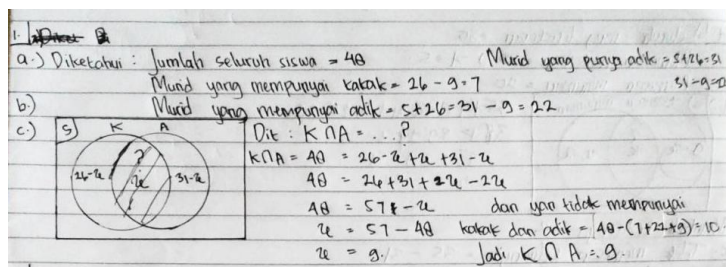 1.
a.) Diketahui : Jumlah seluruh siswa = 48
Murid yang punya adik = 5+26=31
31-9=22
Murid yang mempunyai kakak = 26 - 9 = 7
b.) Murid yang mempunyai adik = 5+26=31 - 9 = 22
c.) Dit : K ∩ A = . . . ?
S K A
?
26-x x 31-x
K∩A = 48 = 26-x+x+31-x
48 = 26+31+x-2x
48 = 57-x
x = 57-48
x = 9.
dan yan tidak mempunyai
kakak dan adik = 48-(7+22+9)=10.
Jadi K ∩ A = 9